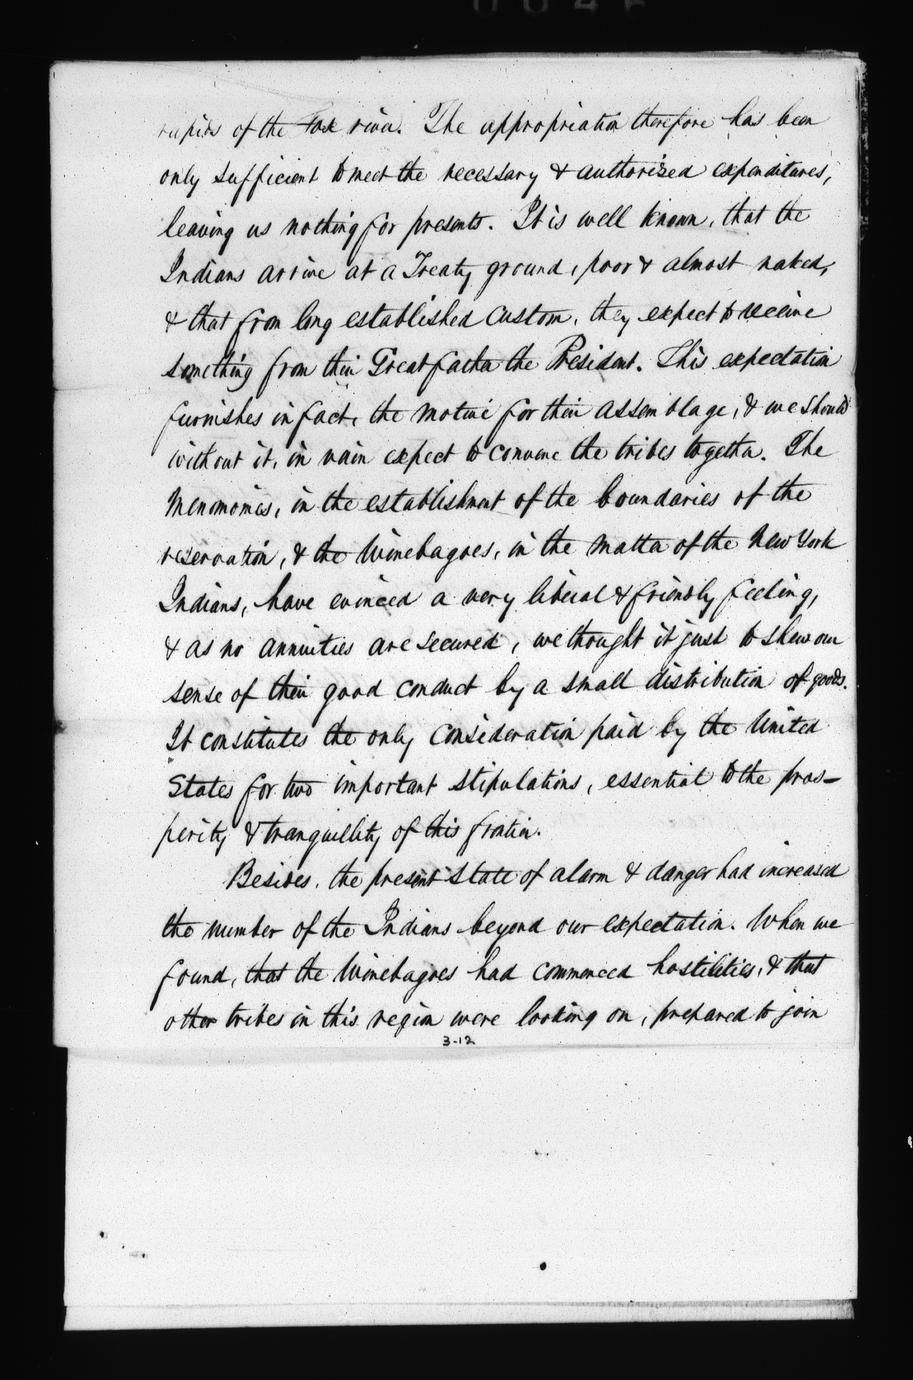 rapids of the Fox river. The appropriation therefore has been
only sufficient to meet the necessary & authorised expenditures,
leaving us nothing for presents. It is well known, that the
Indians arrive at a Treaty ground, poor & almost naked,
& that from long established custom, they expect to receive
something from their Great father the President. This expectation
furnishes in fact, the motive for their assemblage, & we should
without it, in vain expect to convene the tribes together. The
Menomonies, in the establishment of the boundaries of the
reservation, & the Winebagoes, in the matter of the New York
Indians, have evinced a very liberal & friendly feeling,
& as no annuities are secured, we thought it just to shew our
sense of their good conduct by a small distribution of goods.
It constitutes the only consideration paid by the United
States for two important stipulations, essential to the pros-
perity & tranquillity of this frontier.
Besides, the present state of alarm & danger had increased
the number of the Indians beyond our expectation. When we
found, that the Winebagoes had commenced hostilities, & that
other tribes in this region were looking on, prepared to join
3-12